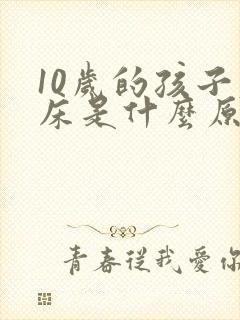 10歲的孩子
床是什麼原
青春從我愛你